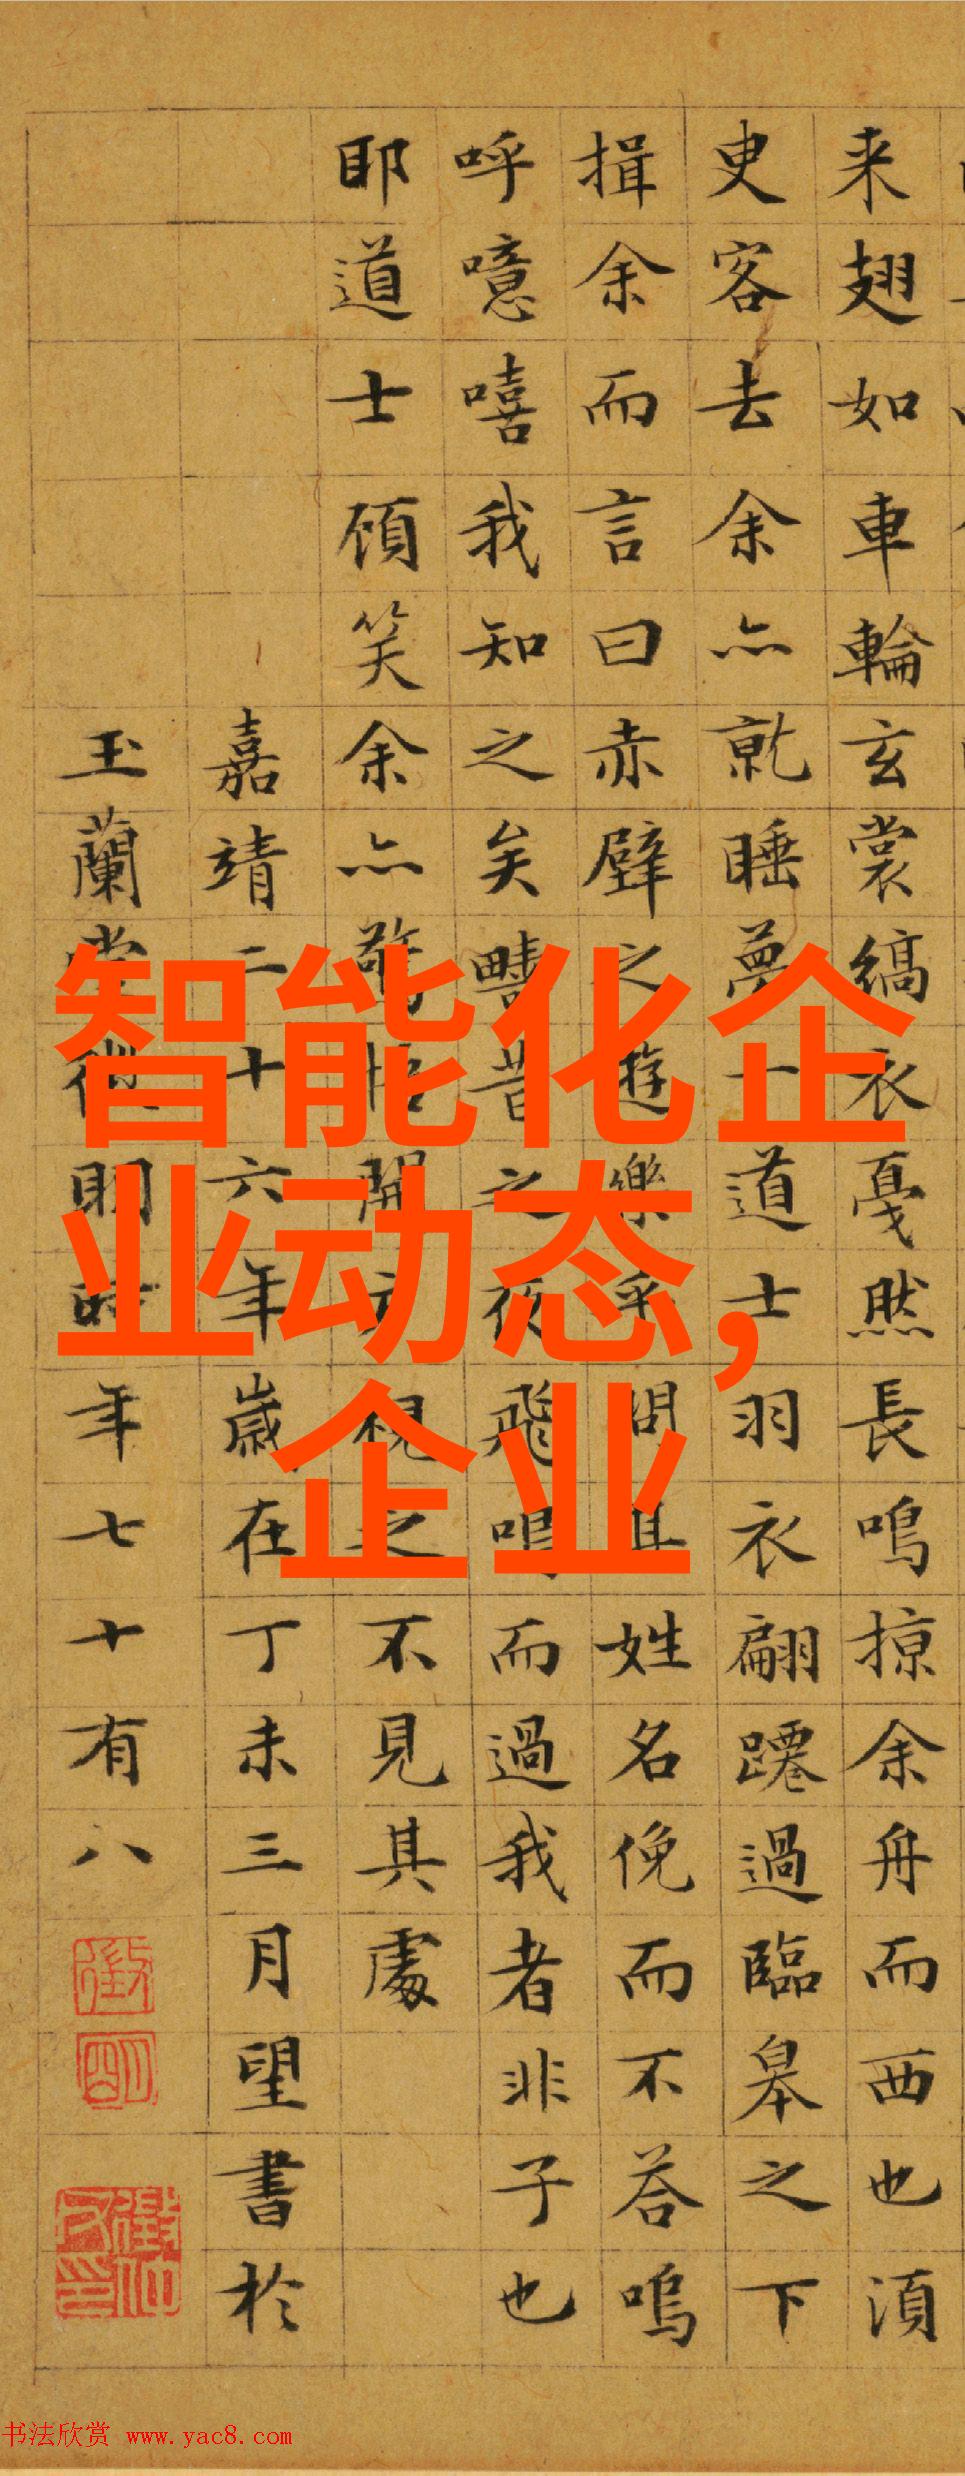 来翅如車輪玄裳縞衣戛然長鳴掠余舟而西也須
臾客去余亦就睡夢一道士羽衣翩躚過臨皋之下
揖余而言曰赤壁之遊樂乎問其姓名俛而不荅嗚
呼噫嘻我知之矣疇昔之夜飛鳴而過我者非子也
耶道士顧笑余亦驚悟開户視之不見其處
嘉靖二十六年歲在丁未三月望書於
玉蘭堂徵明時年七十有八
徵
明
智能化企
业动态,
企业
书法欣赏 www.yac8.com